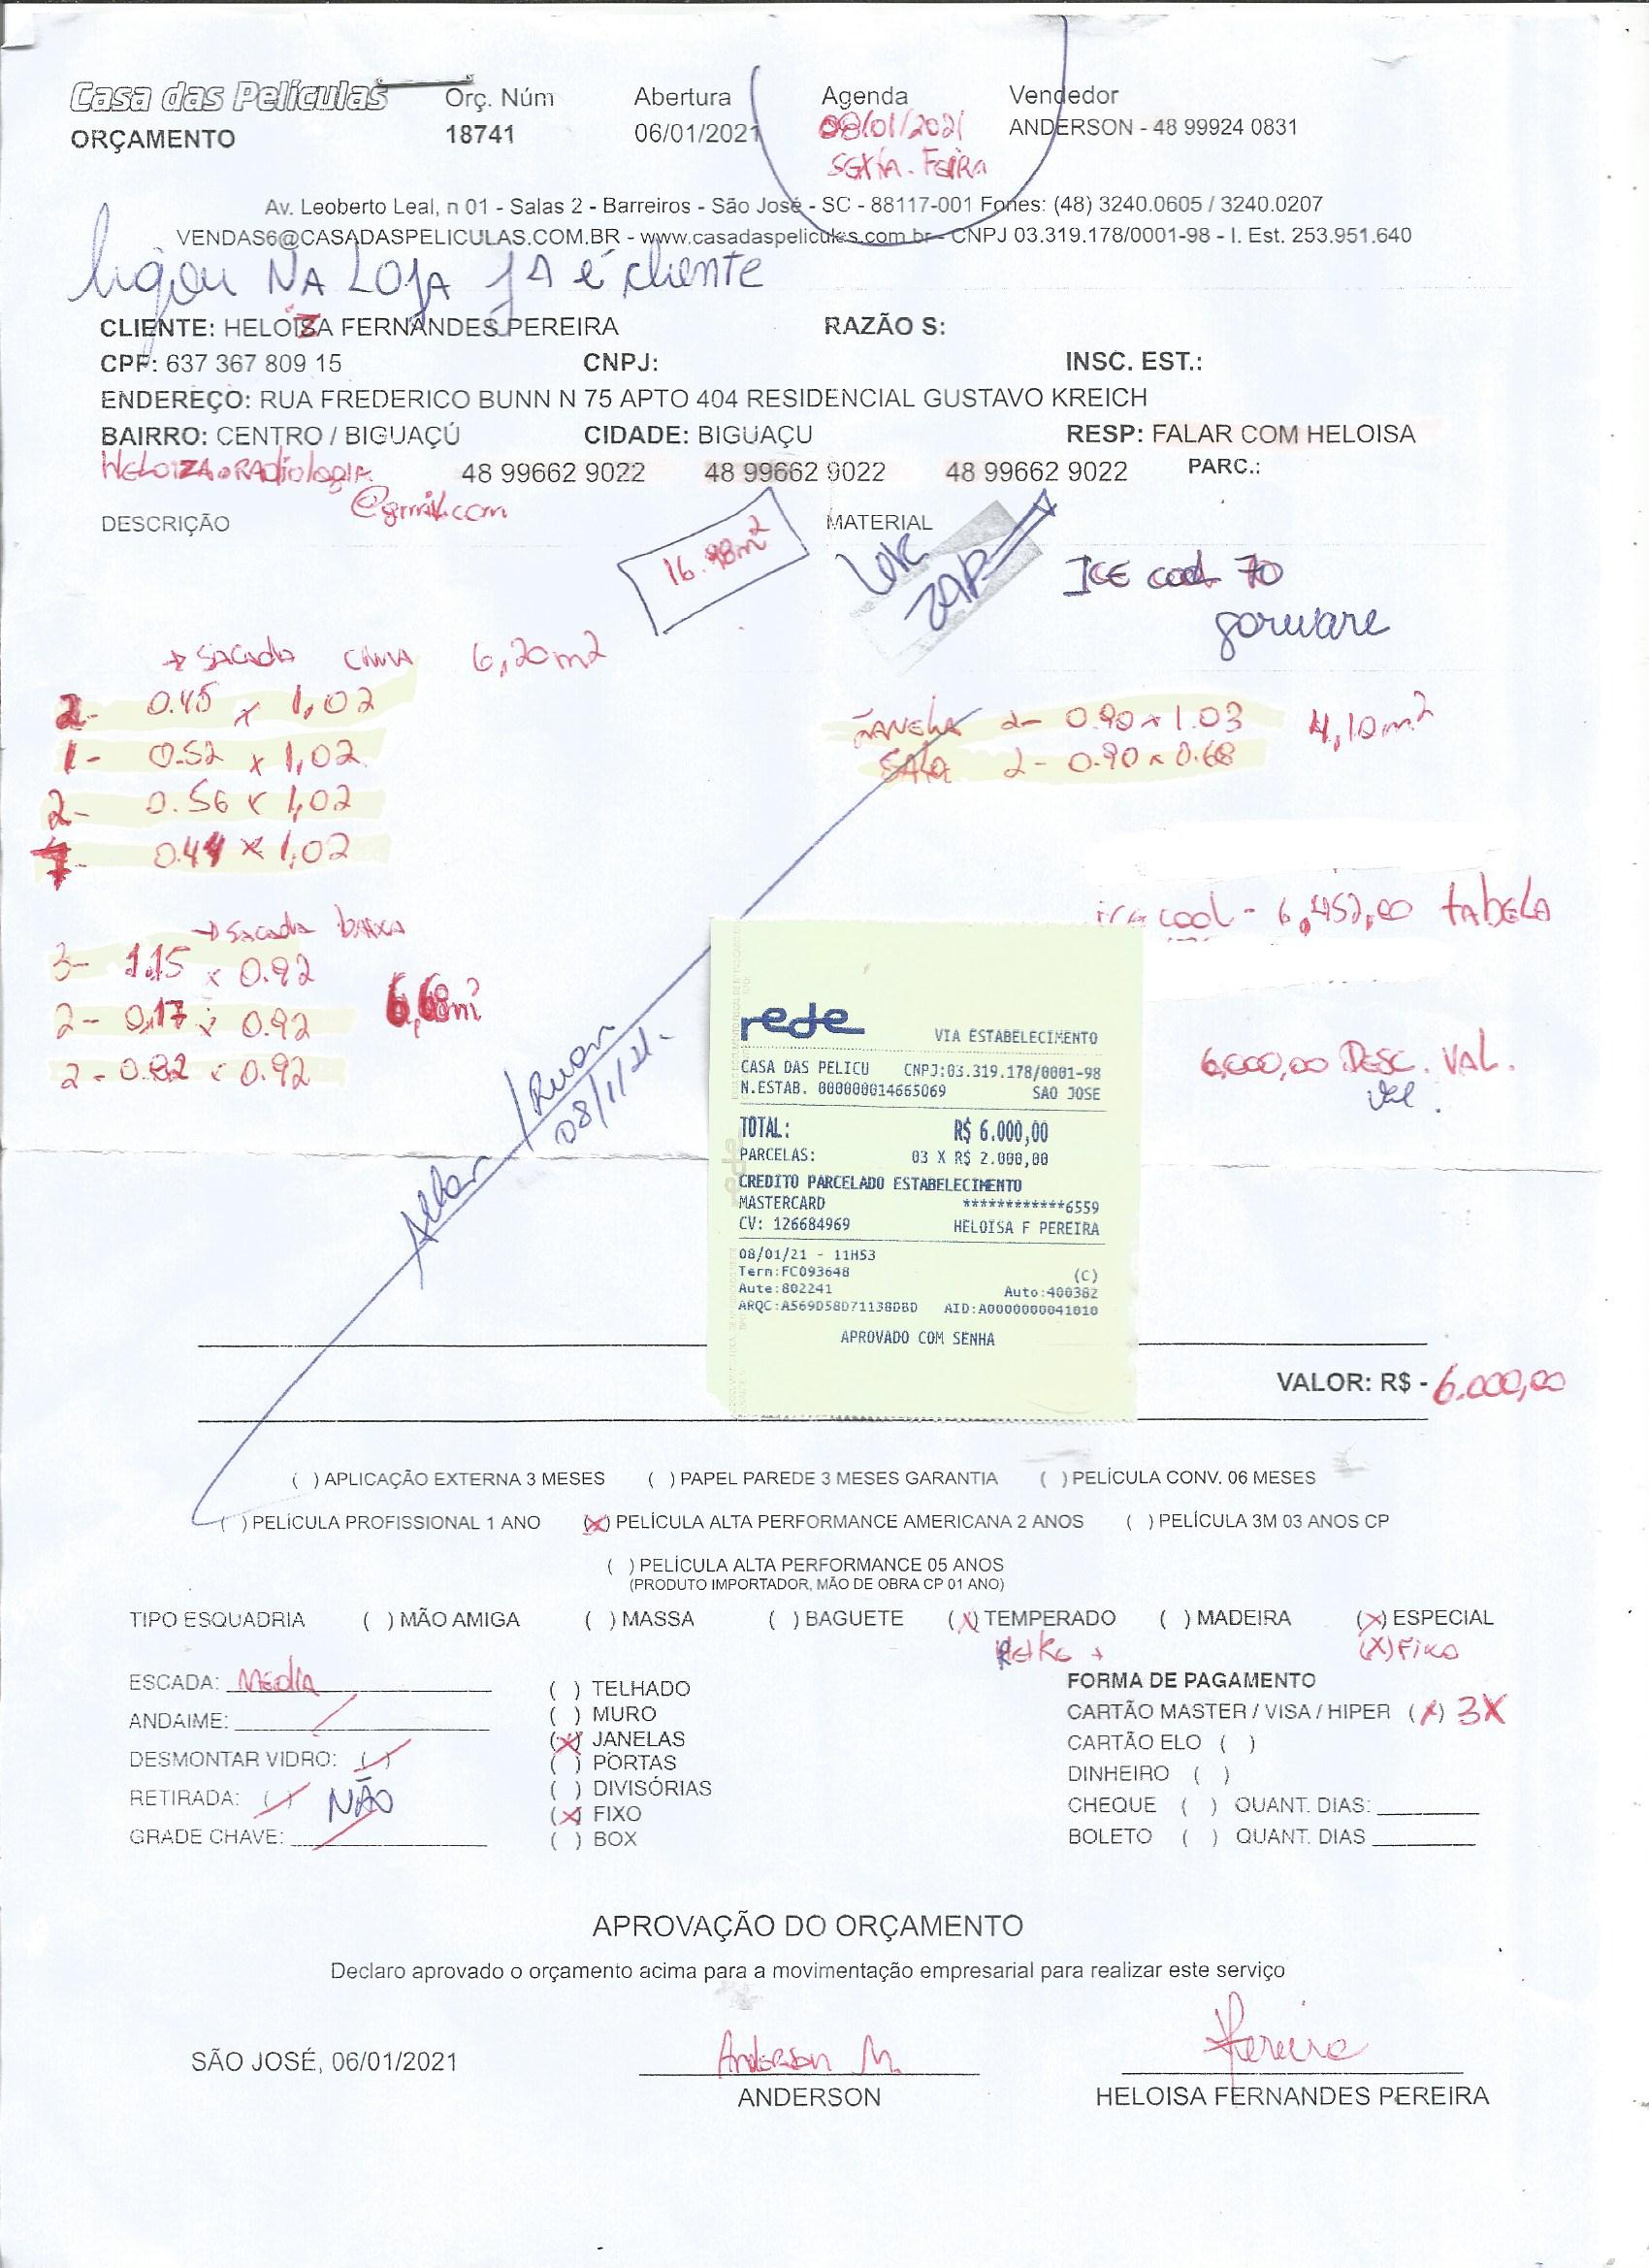 Casa das Películas
ORÇAMENTO
Orç. Núm
18741
Abertura
06/01/2021
Agenda
08/01/2021
SEXTA-FEIRA
Vendedor
ANDERSON - 48 99924 0831
Av. Leoberto Leal, n 01 - Salas 2 - Barreiros - São José - SC - 88117-001 Fones: (48) 3240.0605 / 3240.0207
VENDAS6@CASADASPELICULAS.COM.BR - www.casadaspeliculas.com.br - CNPJ 03.319.178/0001-98 - I. Est. 253.951.640
ligou NA LOJA JÁ é cliente
CLIENTE: HELOIZA FERNANDES PEREIRA RAZÃO S:
CPF: 637 367 809 15 CNPJ: INSC. EST.:
ENDEREÇO: RUA FREDERICO BUNN N 75 APTO 404 RESIDENCIAL GUSTAVO KREICH
BAIRRO: CENTRO / BIGUAÇÚ CIDADE: BIGUAÇU RESP: FALAR COM HELOISA
HELOIZA.RADiologia 48 99662 9022 48 99662 9022 48 99662 9022 PARC.:
@gmil.com
DESCRIÇÃO MATERIAL
16.98m²
ICE cool 70
garware
→ SACADA CIMA 6,20m2
2- 0.45 x 1,02
1- 0.52 x 1,02
2- 0.56 x 1,02
7- 0.44 x 1,02
JANELA 2- 0.90 x 1.03 4,10m²
SALA 2- 0.90 x 0.68
ice cool - 6,452,00 tABELA
→ SACADA BAIXA
3- 1.15 x 0.92
2- 0,17 x 0.92 6,68m²
2- 0.82 x 0.92
6,000,00 DESC. VAL.
Allan / Ruan
08/1/21.
rede
VIA ESTABELECIMENTO
CASA DAS PELICU CNPJ:03.319.178/0001-98
N.ESTAB. 000000014665069 SAO JOSE
TOTAL: R$ 6.000,00
PARCELAS: 03 X R$ 2.000,00
CREDITO PARCELADO ESTABELECIMENTO
MASTERCARD ************6559
CV: 126684969 HELOISA F PEREIRA
08/01/21 - 11H53
Term:FC093648 (C)
Aute:802241 Auto:400382
ARQC:A569D58D71138DBD AID:A0000000041010
APROVADO COM SENHA
VALOR: R$ - 6.000,00
( ) APLICAÇÃO EXTERNA 3 MESES ( ) PAPEL PAREDE 3 MESES GARANTIA ( ) PELÍCULA CONV. 06 MESES
( ) PELÍCULA PROFISSIONAL 1 ANO (X) PELÍCULA ALTA PERFORMANCE AMERICANA 2 ANOS ( ) PELÍCULA 3M 03 ANOS CP
( ) PELÍCULA ALTA PERFORMANCE 05 ANOS
(PRODUTO IMPORTADOR, MÃO DE OBRA CP 01 ANO)
TIPO ESQUADRIA ( ) MÃO AMIGA ( ) MASSA ( ) BAGUETE (X) TEMPERADO ( ) MADEIRA (X) ESPECIAL
(X) Fixo
ESCADA: MÉDIA
ANDAIME:
DESMONTAR VIDRO: ( )
RETIRADA: ( ) NÃO
GRADE CHAVE:
( ) TELHADO
( ) MURO
(X) JANELAS
( ) PORTAS
( ) DIVISÓRIAS
(X) FIXO
( ) BOX
FORMA DE PAGAMENTO
CARTÃO MASTER / VISA / HIPER (X) 3X
CARTÃO ELO ( )
DINHEIRO ( )
CHEQUE ( ) QUANT. DIAS:
BOLETO ( ) QUANT. DIAS
APROVAÇÃO DO ORÇAMENTO
Declaro aprovado o orçamento acima para a movimentação empresarial para realizar este serviço
SÃO JOSÉ, 06/01/2021
Anderson M.
ANDERSON
Pereira
HELOISA FERNANDES PEREIRA